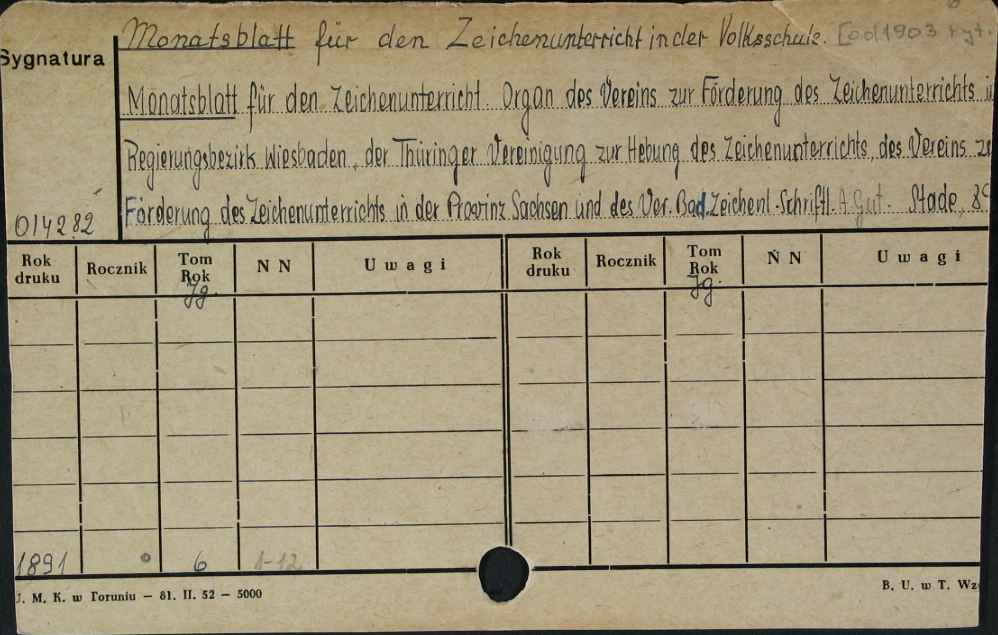 Monatsblatt für den Zeichenunterricht in der Volksschule. [od 1903
Sygnatura
Monatsblatt für den Zeichenunterricht. Organ des Vereins zur Förderung des Zeichenunterrichts i
Regierungsbezirk Wiesbaden, der Thüringer Vereinigung zur Hebung des Zeichenunterrichts, des Vereins z
Förderung des Zeichenunterrichts in der Provinz Sachsen und des Ver. Bad. Zeichenl. Schriftl. A. Gut. Stade, 89
014282
Rok druku Rocznik Tom Rok Jg. N N Uwagi Rok druku Rocznik Tom Rok Jg. N N Uwagi
1891 6 1-12
J. M. K. w Toruniu — 81. II. 52 — 5000 B. U. w T. Wz